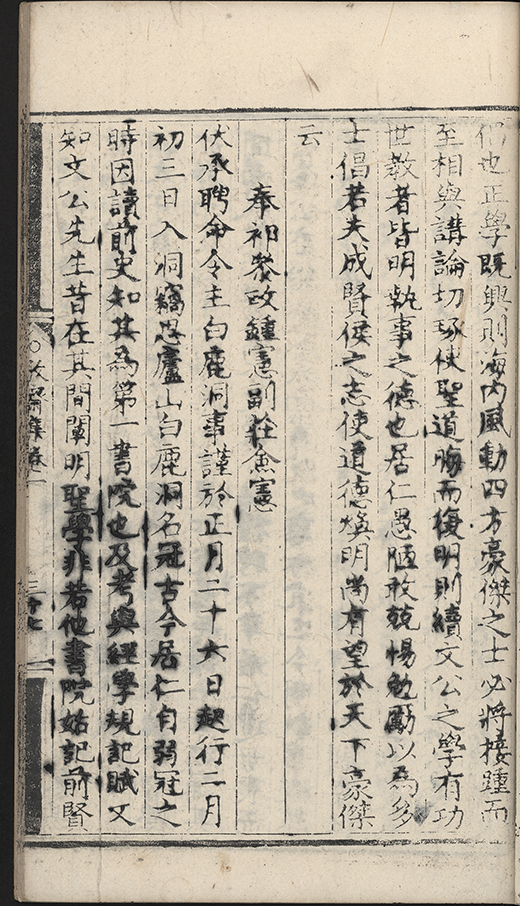 們也正學既興則海內風動四方豪傑之士必將接踵而
至相與講論切琢使聖道晦而復明則續文公之學有功
世教者皆明執事之德也居仁愚陋敢兢惕勉勵以為多
士倡若夫成賢侯之志使道德煥明尚有望於天下豪傑
云
奉祁參政鍾憲副莊僉憲
伏承聘命令主白鹿洞事謹於正月二十六日起行二月
初三日入洞竊思廬山白鹿洞名冠古今居仁自弱冠之
時因讀前史知其為第一書院也及考興經學規記賦又
知文公先生昔在其間闡明聖學非若他書院姑記前賢
敬齋集卷一
三十七